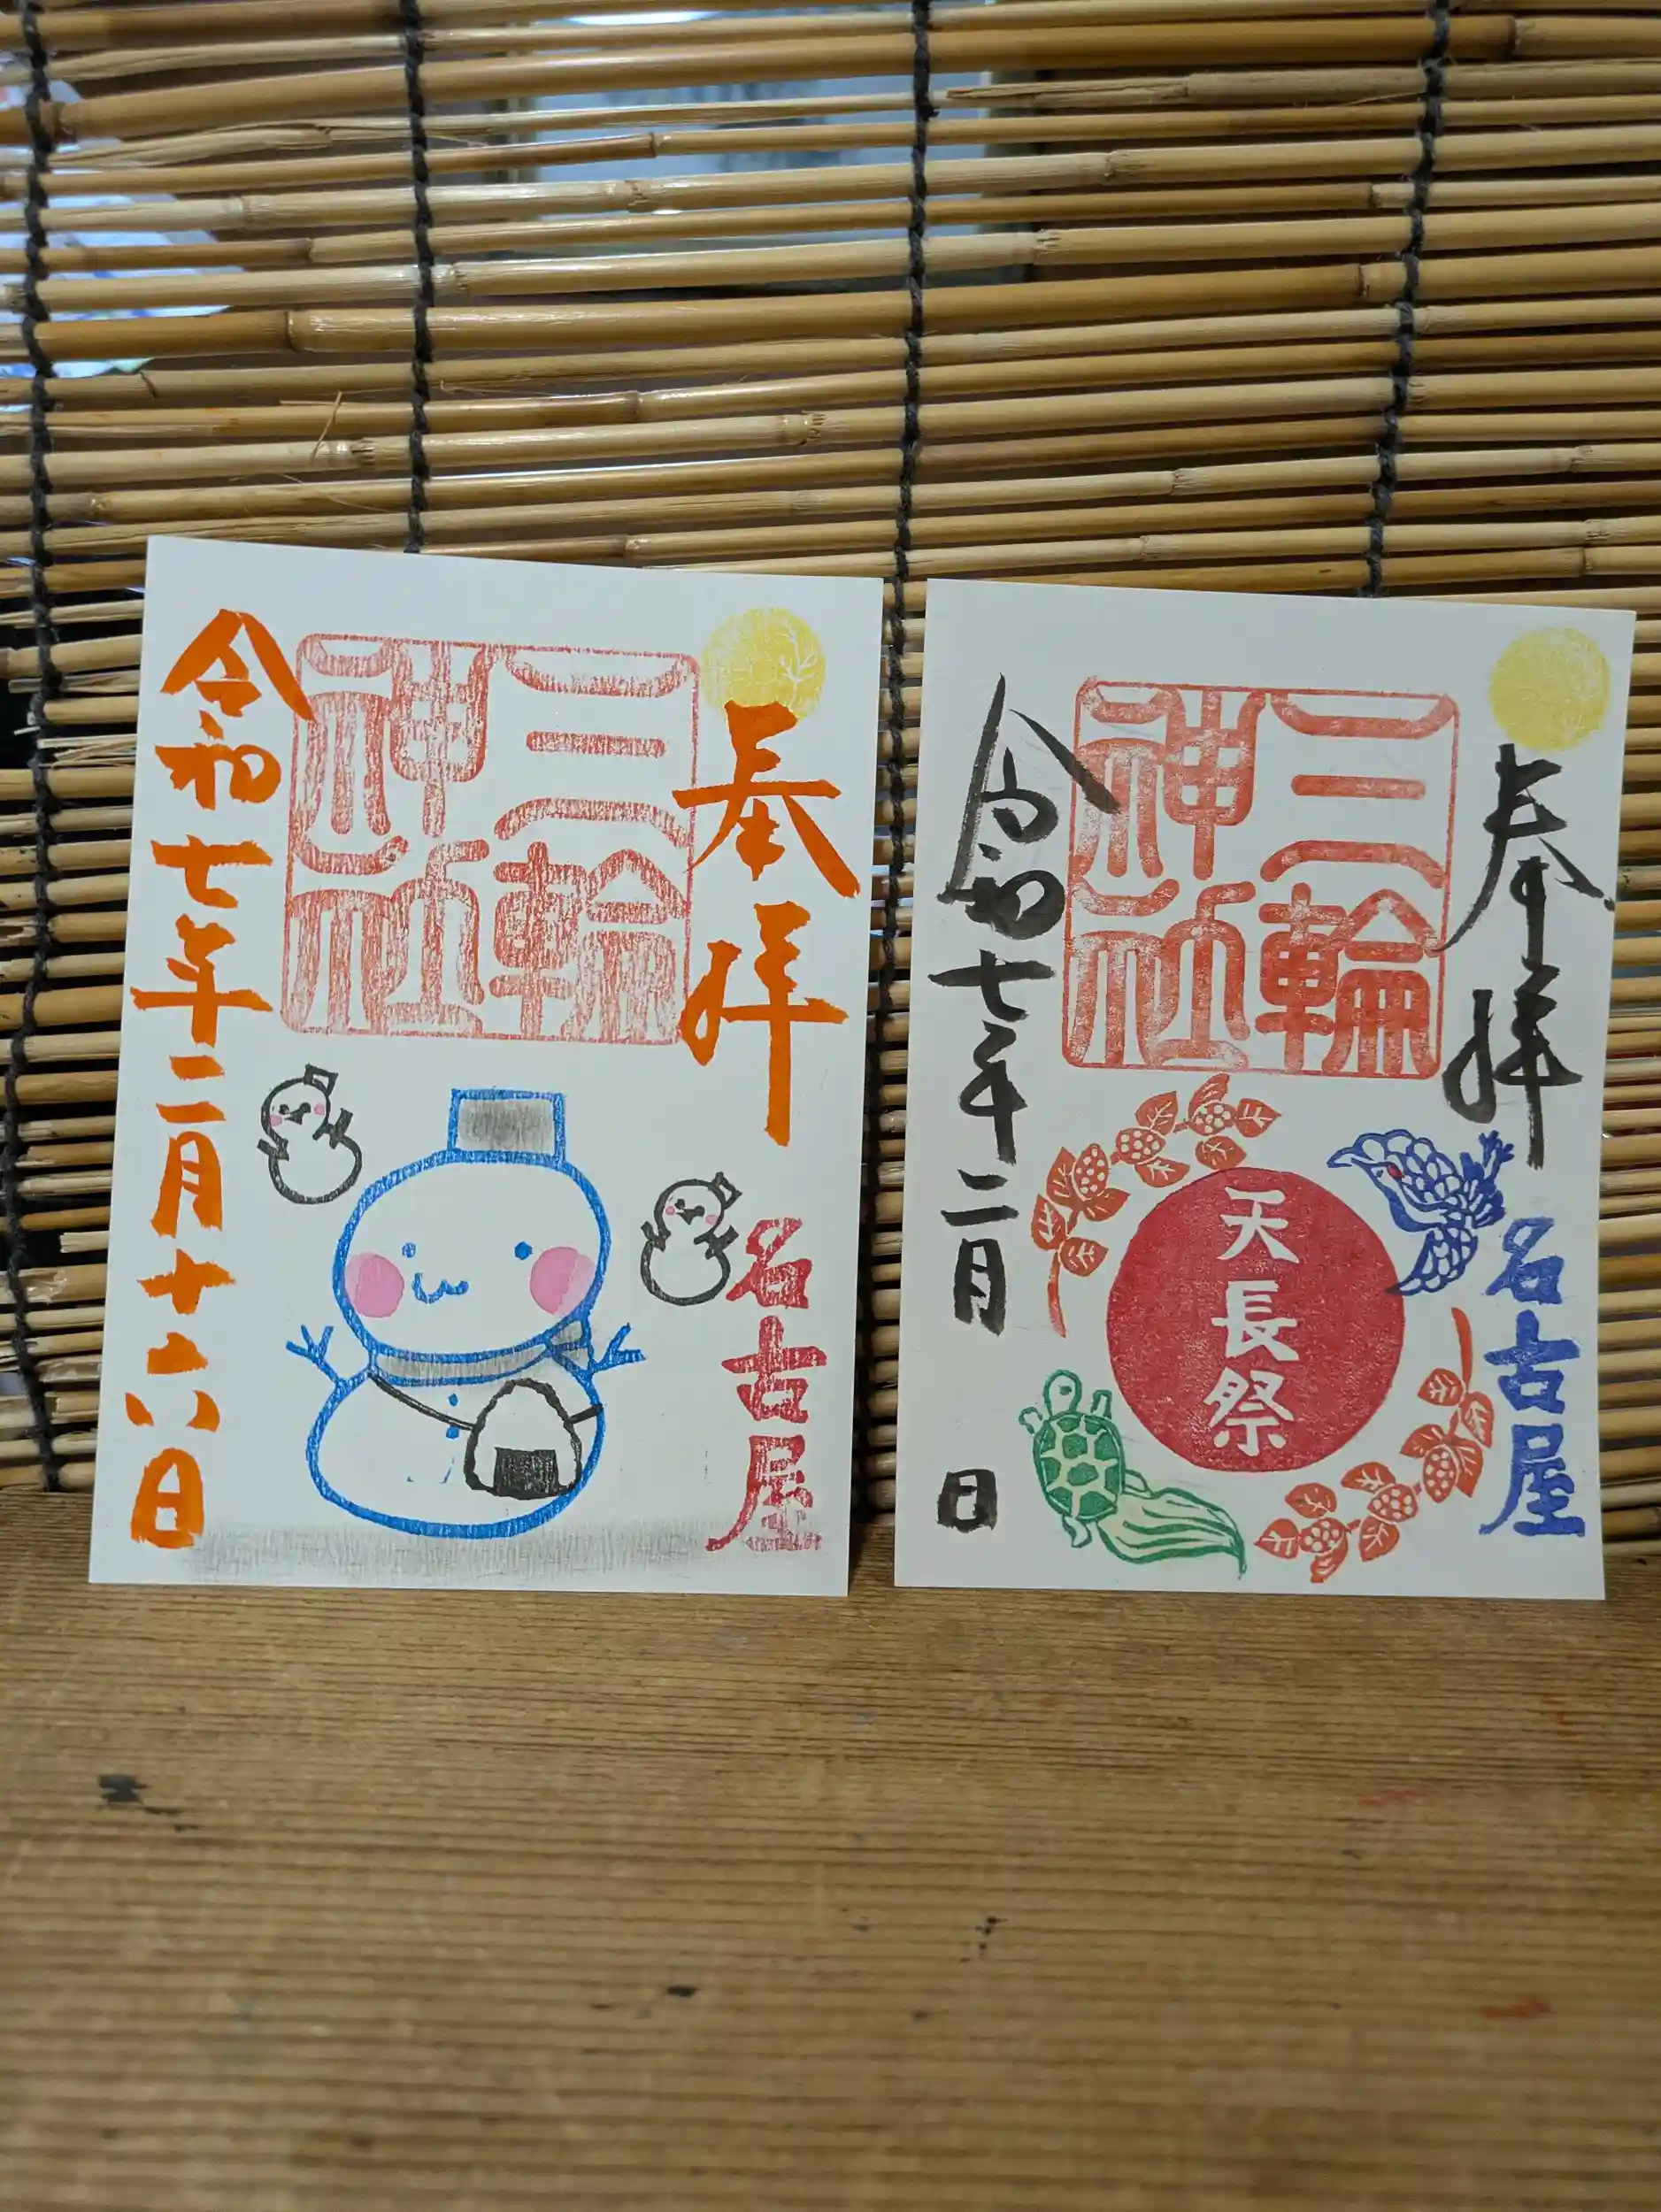 奉拝
名古屋
三輪
神社
令和七年二月十六日
奉拝
名古屋
三輪
神社
天長祭
令和七年二月 日